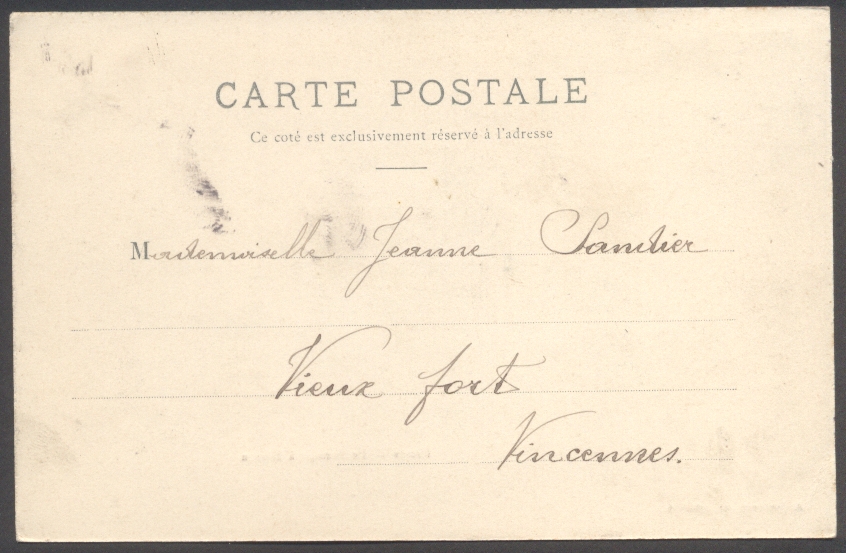 CARTE POSTALE
Ce coté est exclusivement réservé à l'adresse
Mademoiselle Jeanne
Vieux fort
Vincennes.